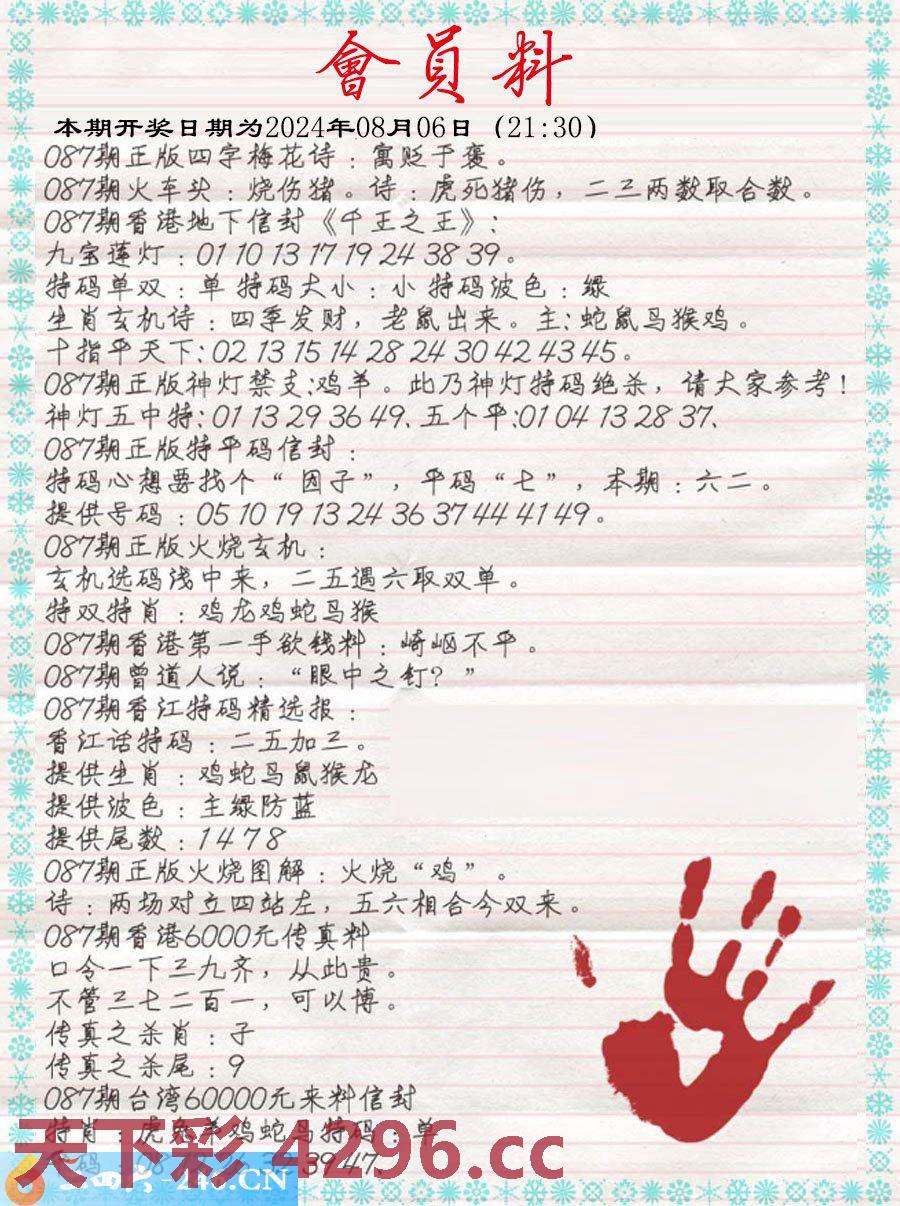 會員料
本期开奖日期为2024年08月06日（21:30）
087期正版四字梅花诗：寓贬于褒。
087期火车头：烧伤猪。诗：虎死猪伤，二三两数取合数。
087期香港地下信封《千王之王》：
九宝莲灯：01 10 13 17 19 24 38 39。
特码单双：单 特码大小：小 特码波色：绿
生肖玄机诗：四季发财，老鼠出来。主：蛇鼠马猴鸡。
十指平天下：02 13 15 14 28 24 30 42 43 45。
087期正版神灯禁支:鸡羊。此乃神灯特码绝杀，请大家参考！
神灯五中特：01 13 29 36 49、五个平:01 04 13 28 37、
087期正版特平码信封：
特码心想要找个“因子”，平码“七”，本期：六二。
提供号码：05 10 19 13 24 36 37 44 41 49。
087期正版火烧玄机：
玄机选码浅中来，二五遇六取双单。
特双特肖：鸡龙鸡蛇马猴
087期香港第一手欲钱料：崎岖不平。
087期曾道人说：“眼中之钉？”
087期香江特码精选报：
香江话特码：二五加三。
提供生肖：鸡蛇马鼠猴龙
提供波色：主绿防蓝
提供尾数：1 4 7 8
087期正版火烧图解：火烧“鸡”。
诗：两场对立四站左，五六相合今双来。
087期香港6000元传真料
口令一下三九齐，从此贵。
不管三七二百一，可以博。
传真之杀肖：子
传真之杀尾：9
087期台湾60000元来料信封
特肖：虎兔羊鸡蛇马特码：单
39 47、
天下彩 4296.cc
246.CN